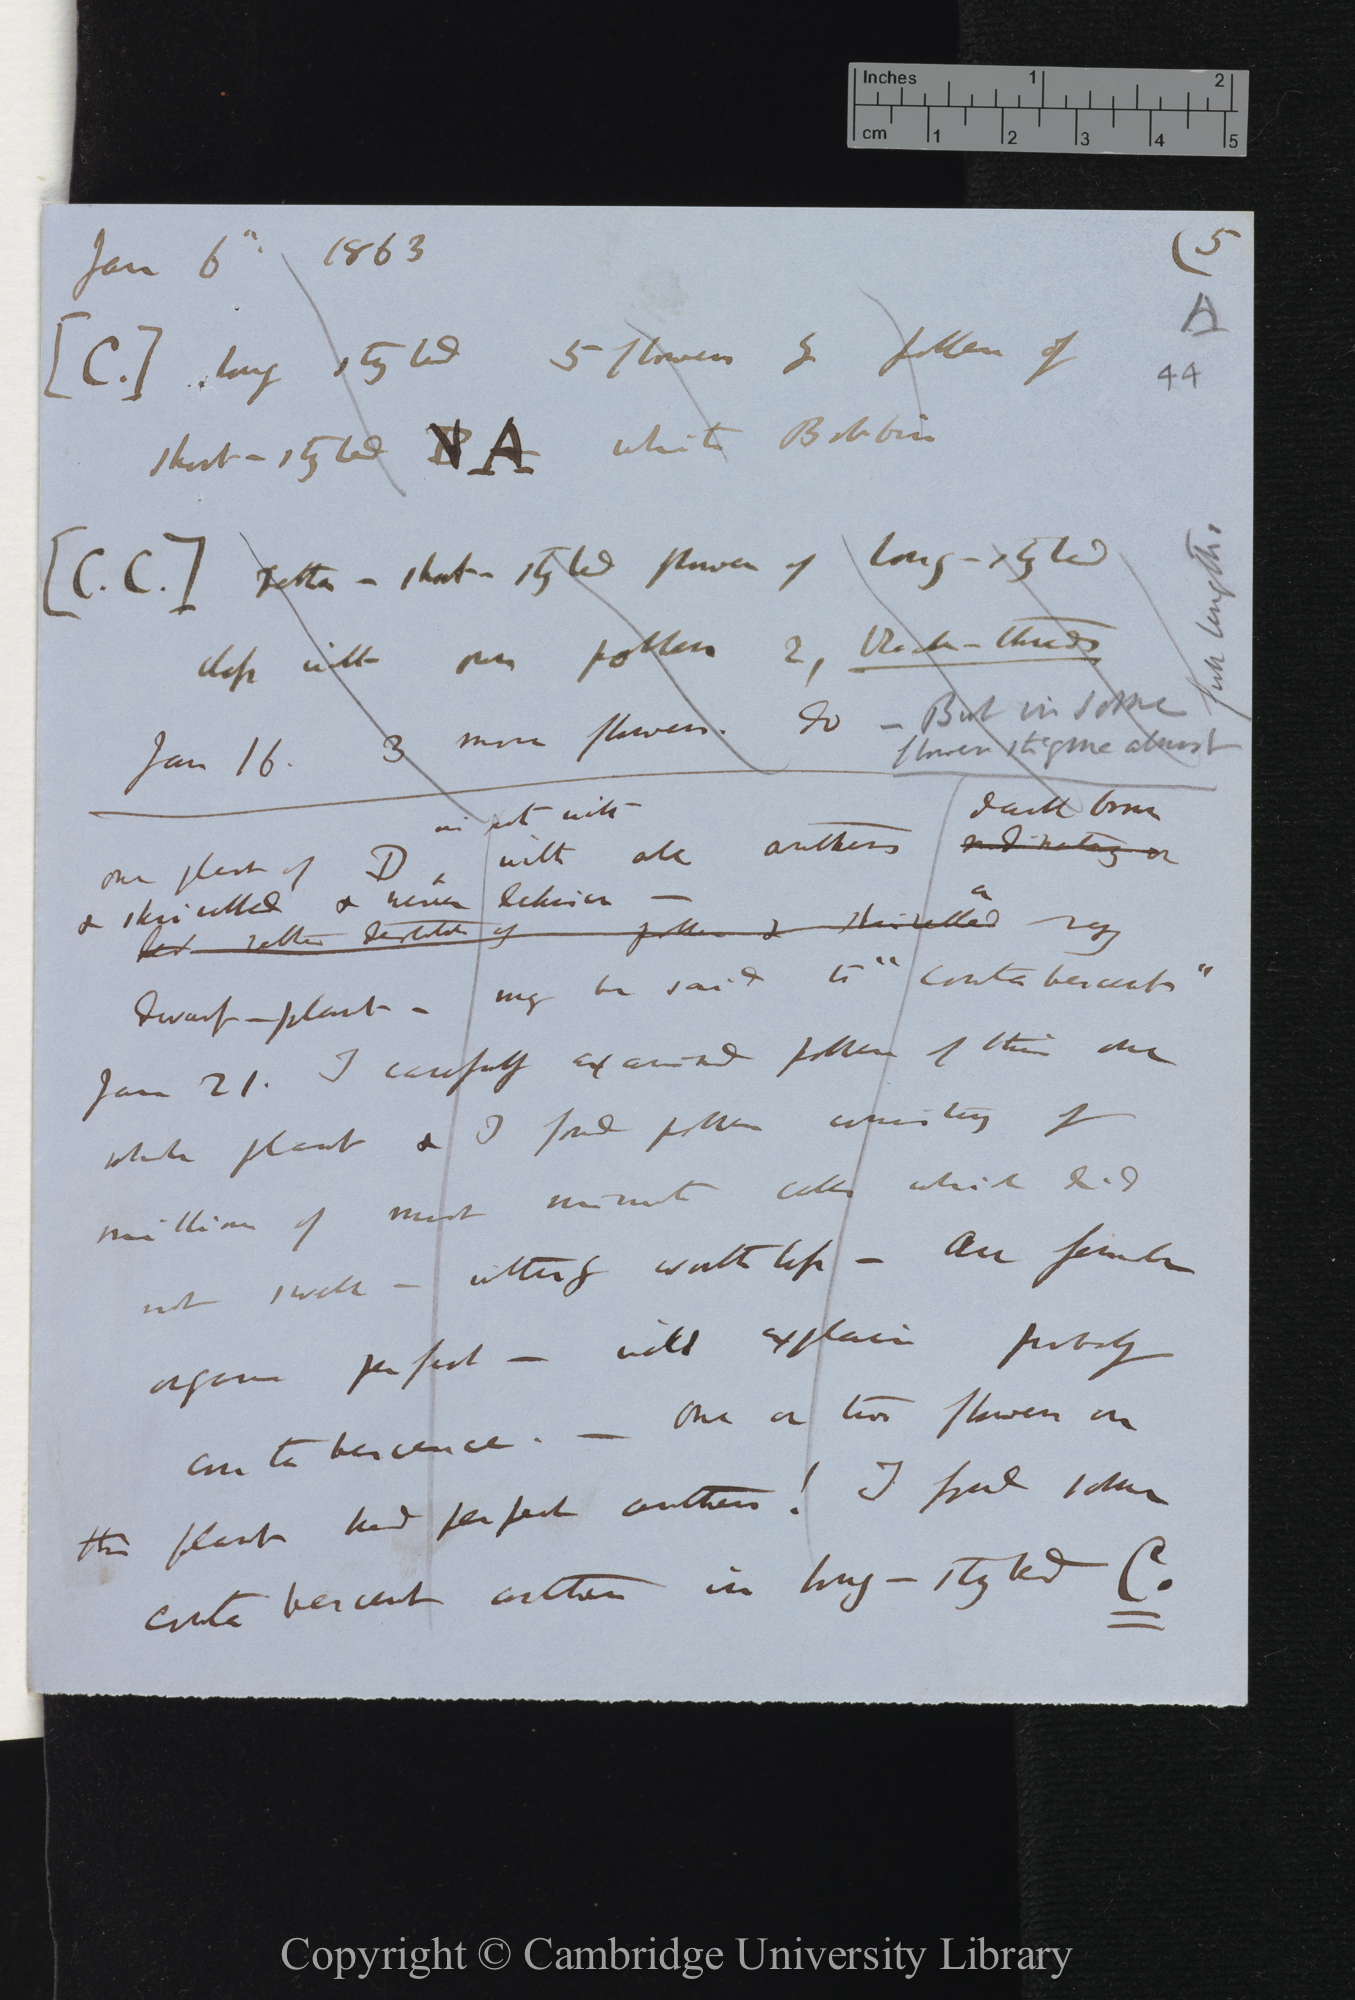 Inches 1 2
cm 1 2 3 4 5
Jan 6th. 1863 (5
A
44
[C.] long styled 5 flowers by pollen of
short-styled A white Bobbin
[C.C.] rather-short-styled flower of long-styled
with own pollen 2, Black-threads
full length
Jan 16. 3 more flowers. do - But in some
flowers stigma almost
in pot with dark brown
one plant of D with all anthers or
& shrivelled & never dehisce -
but rather destitute of pollen & shrivelled a
dwarf-plant - may be said to "contabescent"
Jan 21. I carefully examined pollen of this one
whole plant & I find pollen consisting of
million of most minute cells which did
not swell - utterly worthless - All female
organs perfect - will explain probably
contabescence. - One or two flowers on
this plant had perfect anthers! I find some
contabescent anthers in long-styled C.
Copyright © Cambridge University Library